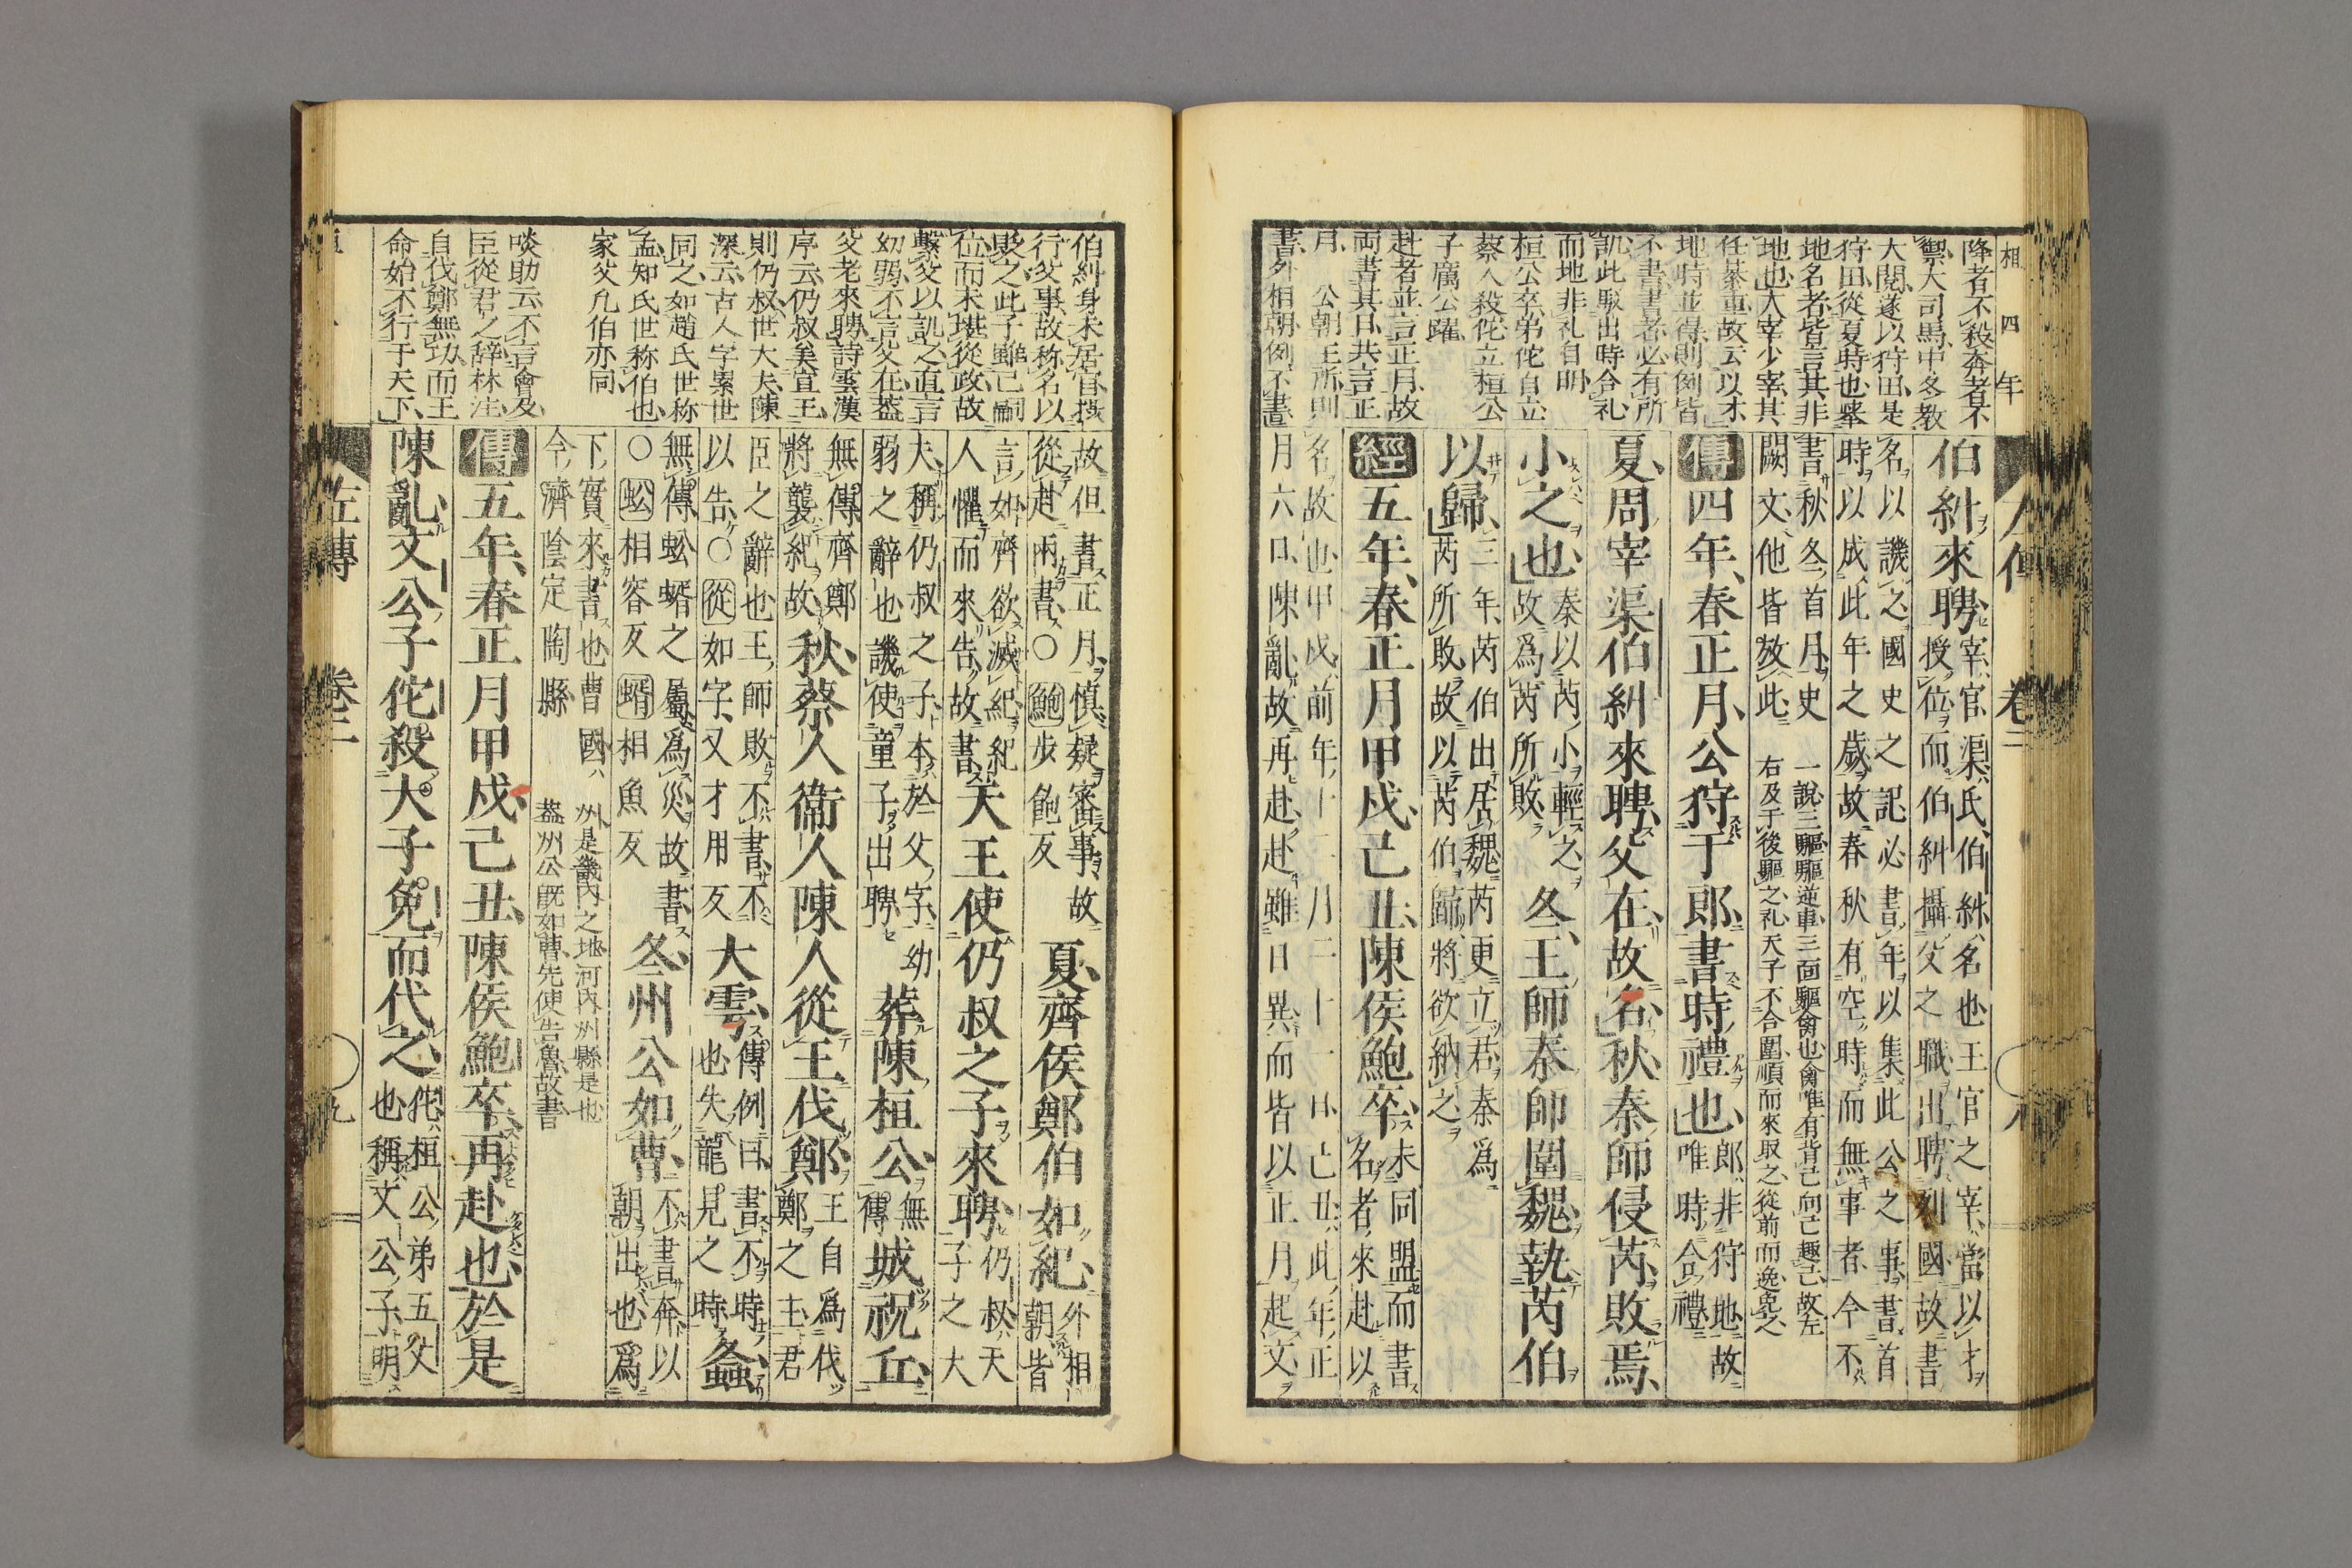 相四年
左傳 卷二 八
降者不殺奔者不
禦大司馬中冬教
大閲遂以狩田是
狩田從夏時也舉
地名者皆言其非
地也大宰少宰其
任綦重故云以才
地時並得則例皆
不書書者必有所
譏此駁出時合礼
而地非礼自明
桓公卒弟佗自立
蔡人殺佗立桓公
子厲公躍
赴者並言正月故
両書其日共言正
月 公朝王所則
書外相朝例不書
伯糾來聘 宰官渠氏伯糾名也王官之宰當以才
授位而伯糾攝父之職出聘列國故書
名以譏之國史之記必書年以集此公之事書首
時以成此年之歳故春秋有空時而無事者今不
書秋冬首月史
闕文他皆放此
一說三驅驅逆車三面驅禽也禽唯有背己向己趣己故左
右及于後驅之礼天子不合圍順而來取之從前而逸免之
傳四年春正月公狩于郎書時禮也 郎非狩地故
唯時合禮
夏周宰渠伯糾來聘父在故名秋秦師侵芮敗焉
小之也 秦以芮小輕之
故爲芮所敗
冬王師秦師圍魏執芮伯
以歸 三年芮伯出居魏芮更立君秦爲
芮所敗故以芮伯歸將欲納之
經五年春正月甲戌己丑陳侯鮑卒 未同盟而書
名者來赴以
名故也甲戌前年十二月二十一日己丑此年正
月六日陳亂故再赴赴雖日異而皆以正月起文
伯糾身未居官攝
行父事故称名以
貶之此子雖已嗣
位而未堪從政故
繫父以譏之直言
幼弱不言父在蓋
父老來聘詩雲漢
序云仍叔美宣王
則仍叔世大夫陳
深云古人字累世
同之如趙氏世称
孟知氏世称伯也
家父凡伯亦同
啖助云不言會及
臣從君之辞林注
自伐鄭無功而王
命始不行于天下
故但書正月愼疑審事故
從赴兩書○鮑步飽反
夏齊侯鄭伯如紀 外相
朝皆
言如齊欲滅紀紀
人懼而來告故書
天王使仍叔之子來聘 仍叔天
子之大
夫稱仍叔之子本於父字幼
弱之辭也譏使童子出聘
葬陳桓公 無
傳
城祝丘
無傳齊鄭
將襲紀故
秋蔡人衞人陳人從王伐鄭 王自爲伐
鄭之主君
臣之辭也王師敗不書不
以告○從如字又才用反
大雩 傳例曰書不時
也失龍見之時
螽
無傳蚣蝑之屬爲災故書
○蚣相容反蝑相魚反
冬州公如曹 不書奔以
朝出也爲
下實來書也曹國
今濟陰定陶縣
州是畿内之地河内州縣是也
蓋州公既如曹先使告魯故書
傳五年春正月甲戌己丑陳侯鮑卒再赴也於是
陳亂文公子佗殺大子免而代之 佗桓公弟五父
也稱文公子明
左傳 卷二 九